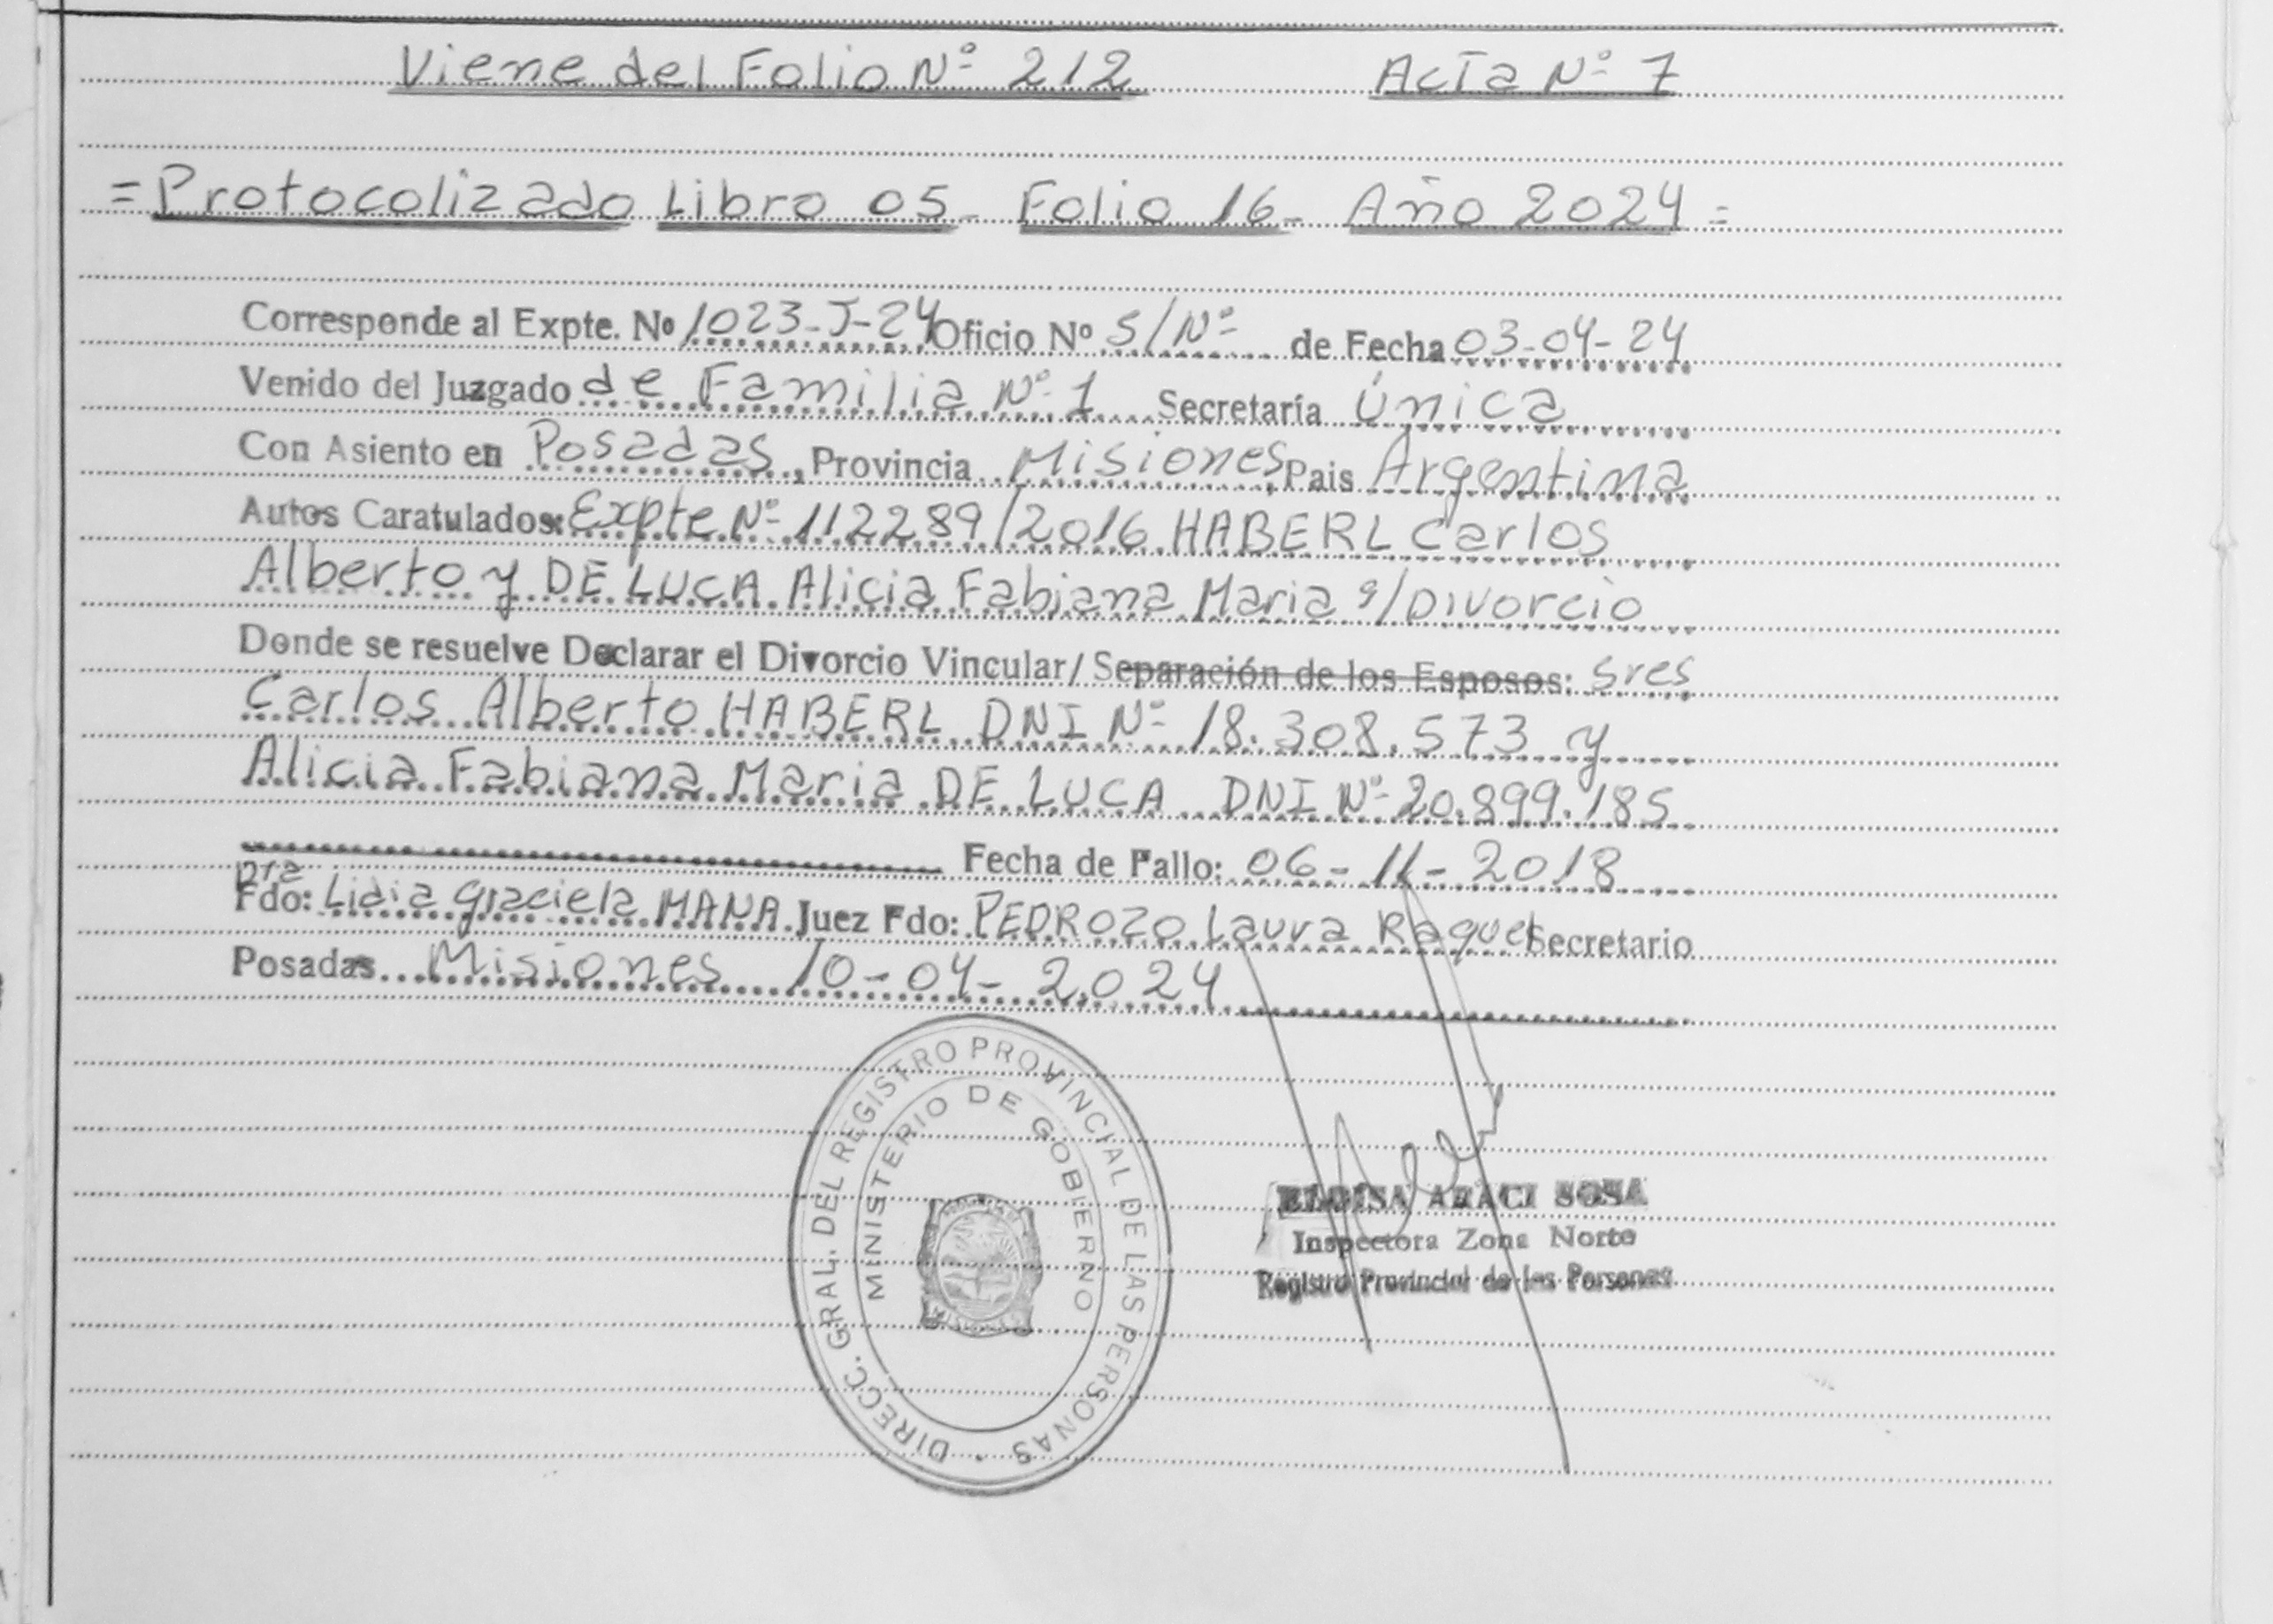 Viene del Folio Nº 212 Acta Nº 7
=Protocolizado Libro 05- Folio 16- Año 2024=
Corresponde al Expte. Nº 1023-J-24 Oficio Nº S/Nº de Fecha 03-04-24
Venido del Juzgado de Familia Nº 1 Secretaría Única
Con Asiento en Posadas, Provincia Misiones, Pais Argentina
Autos Caratulados: Expte Nº 112289/2016 HABERL Carlos
Alberto y DE LUCA Alicia Fabiana Maria s/Divorcio
Donde se resuelve Declarar el Divorcio Vincular/ Separación de los Esposos: Sres
Carlos Alberto HABERL DNI Nº 18.308.573 y
Alicia Fabiana Maria DE LUCA DNI Nº 20.899.185
Fecha de Fallo: 06-11-2018
Dra
Fdo: Lidia Graciela MANA Juez Fdo: PEDROZO Laura Raquel Secretario
Posadas Misiones 10-04-2024
DIRECC. GRAL. DEL REGISTRO PROVINCIAL DE LAS PERSONAS
MINISTERIO DE GOBIERNO
MISIONES
ELOISA ARACI SOSA
Inspectora Zona Norte
Registro Provincial de las Personas